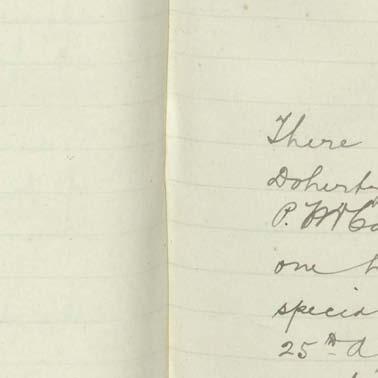 There
Dohert
P. McCa
one h
specia
25th d